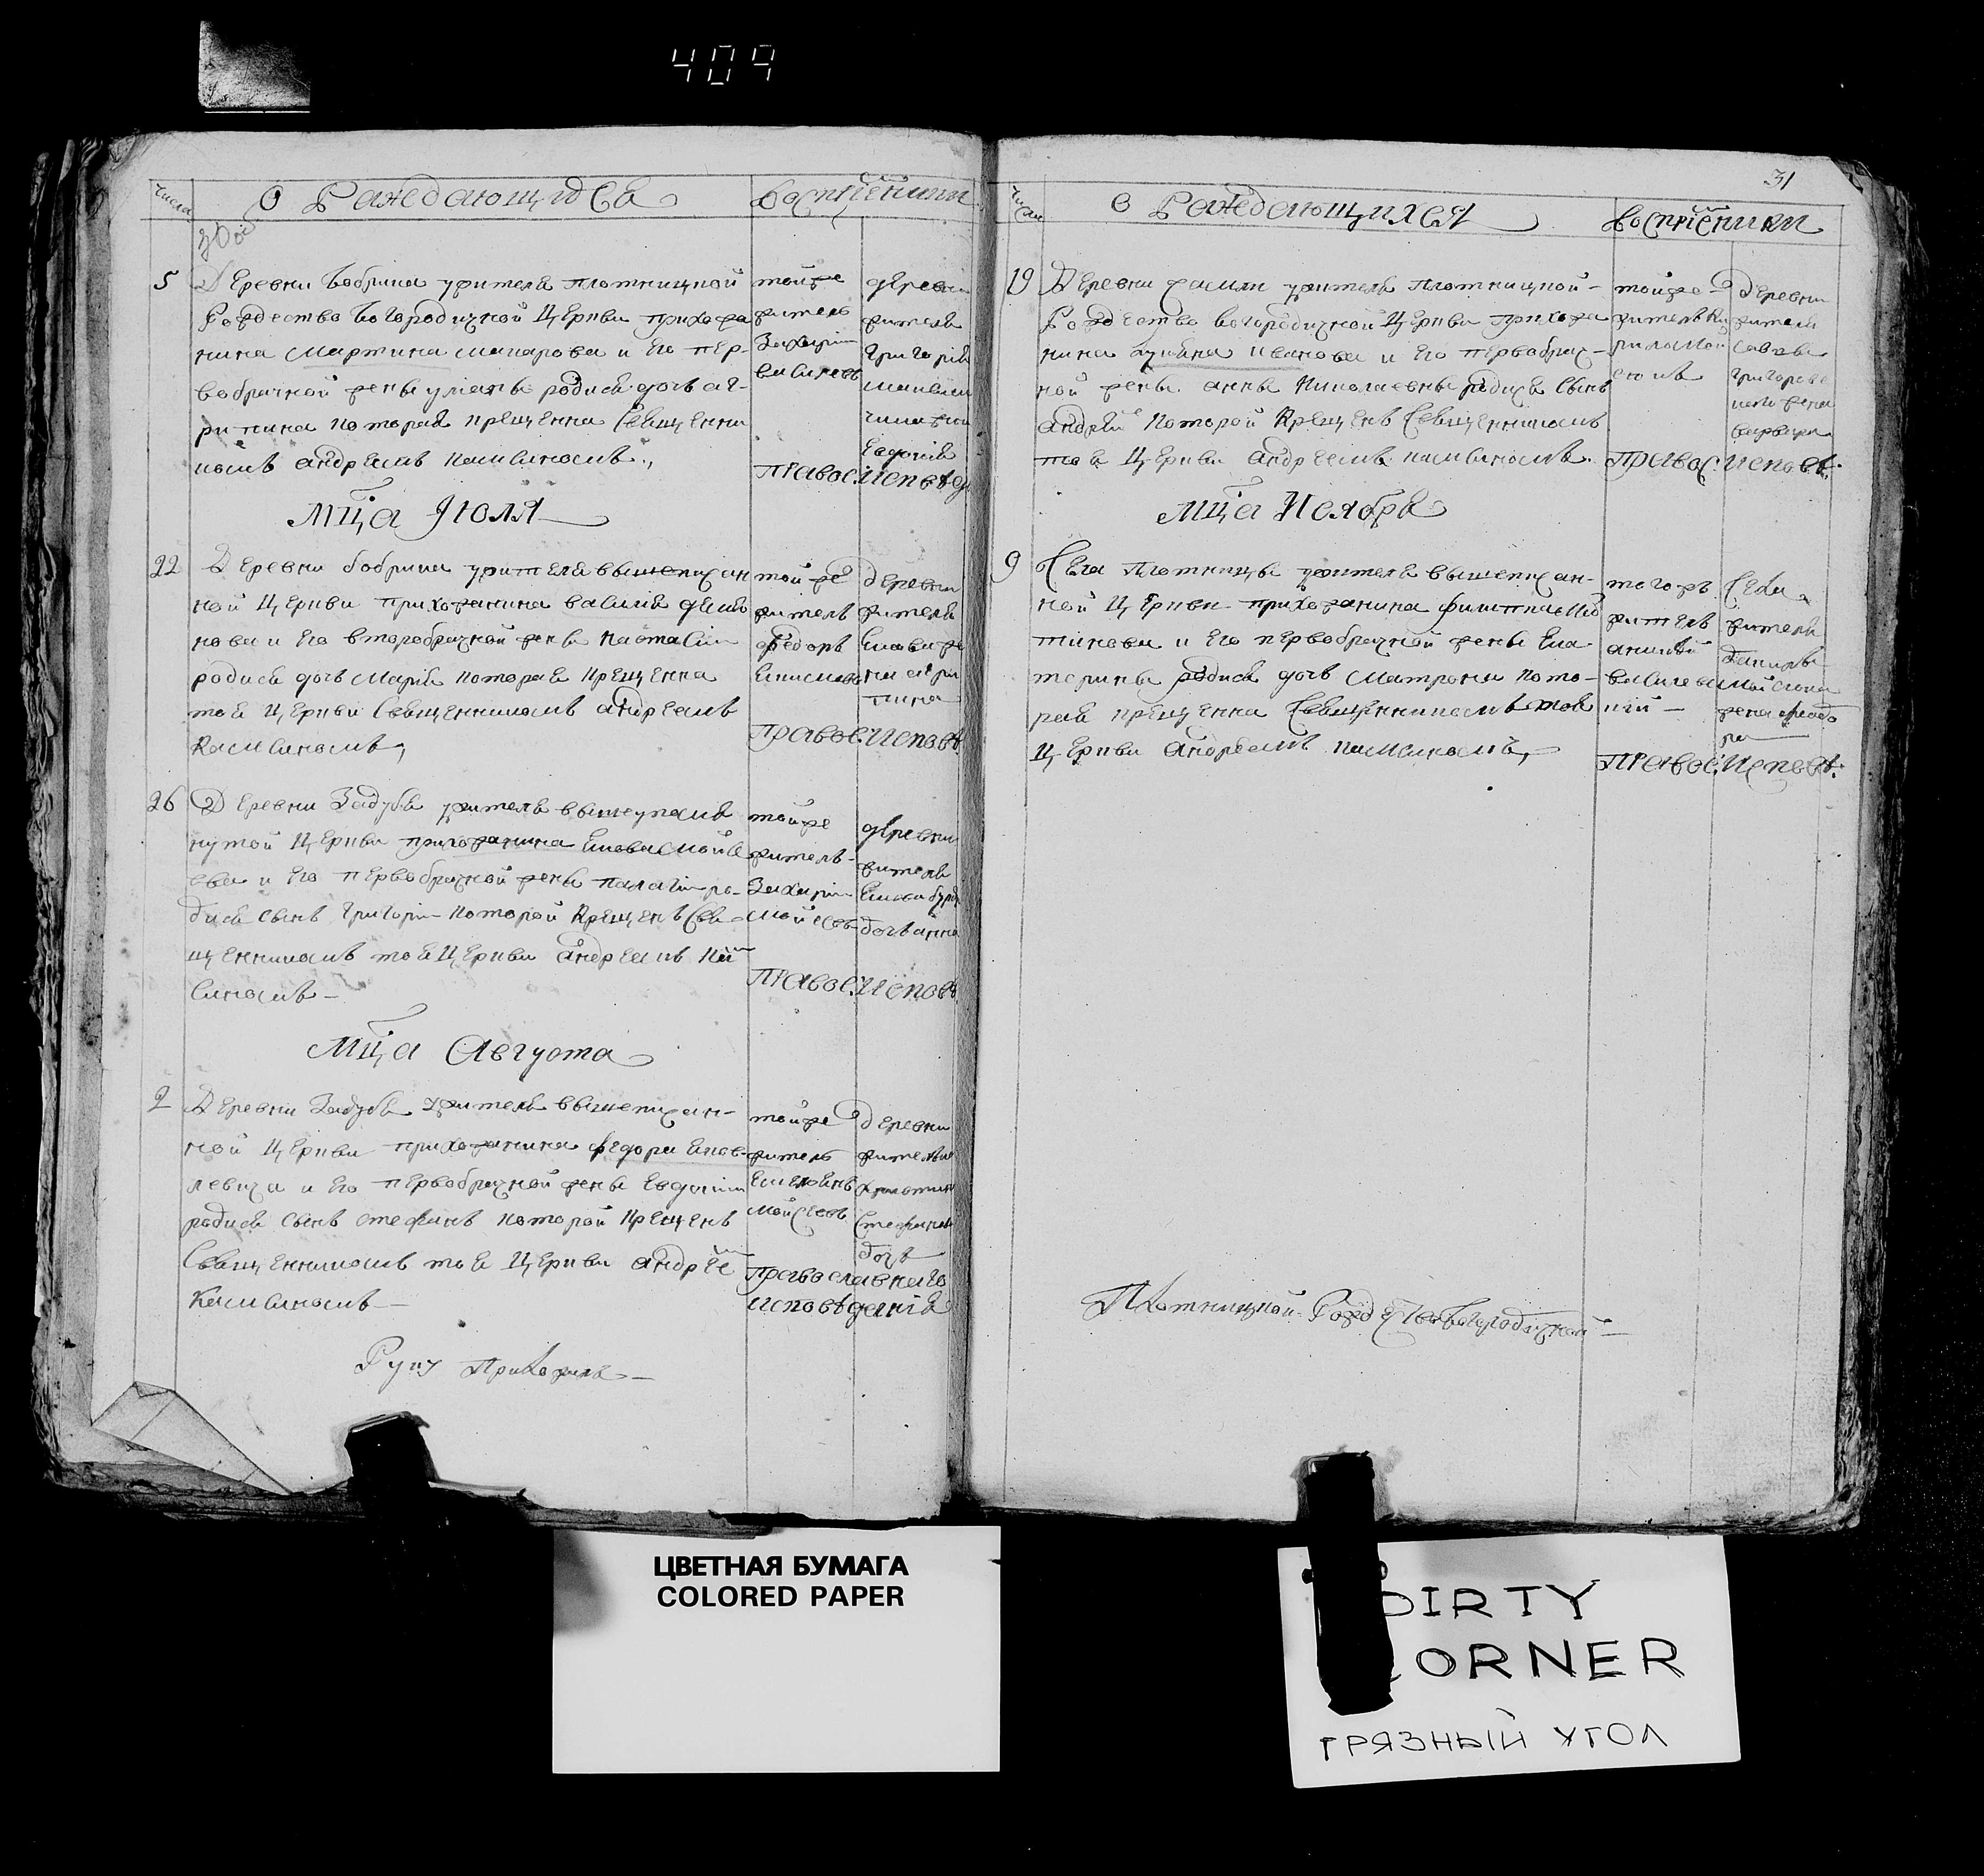 409
числа
О Раждающихся
воспріемники
5
Деревни Бобрика жителя плотницкой
Рождество Богородичной Церкви прихожа
нина Мартина Макарова и Его пер-
вобрачной жены улiаны родися дочь аг-
рипина которая крещенна Священни
комъ андреемъ Калиновомъ
той же
житель
Захарiй
деревни
жителя
григорія
Евдокія
Правос: исповед
Мца Июля
22
Деревни бобрика жителя вышеписан
ной Церкви прихожанина василія
нова и Его второбрачной жены
родися дочь Марія которая крещенна
тоя Церкви Священникомъ андреемъ
той же
житель
федоръ
деревни
жителя
Якова же
на агри
пина
Правос: исповѣ
26
Деревни Задубя жителя вышеупомя
нутой Церкви прихожанина Якова Мойсе
ева и Его первобрачной жены палагiи ро-
дися сынъ григорiй которой крещенъ Свя-
щенникомъ тоя Церкви андреемъ
той же
житель
Захарiй
Мойсеев
деревни
жителя
Якова
дочь анна
Правос: исповѣ
Мца Августа
2
Деревни Задубя жителя вышеписан-
ной Церкви прихожанина федора Яков
левича и Его первобрачной жены Евдокiи
родися сынъ стефанъ которой крещенъ
Священникомъ тоя Церкви андрее
той же
житель
Мойсеев
деревни
Стефанов
дочь
православнаго
исповѣданія
Руку Приложилъ
31
числа
О Раждающихся
воспріемники
19
Деревни жителя плотницкой-
Рождество богородичной Церкви прихожа
нина Лукяна иванова и Его первобрач-
ной жены анны Николаевны родися сынъ
андрей которой крещенъ Священникомъ
тоя Церкви андреемъ
той же
деревни
жителя
Савы
григорева
жена
варвара
Правос: исповѣ:
Мца Ноября
9
Села Плотницы жителя вышеписан-
ной Церкви прихожанина филиппа
тинова и Его первобрачной жены Ека
терины родися дочь Матрона кото-
рая крещенна Священникомъ тоя
Церкви андреемъ
тогожъ
житель
Села
жителя
данилы
жена
Правос: исповѣ:
Плотницкой Рождество богородичной
ЦВЕТНАЯ БУМАГА
COLORED PAPER
DIRTY
CORNER
ГРЯЗНЫЙ УГОЛ